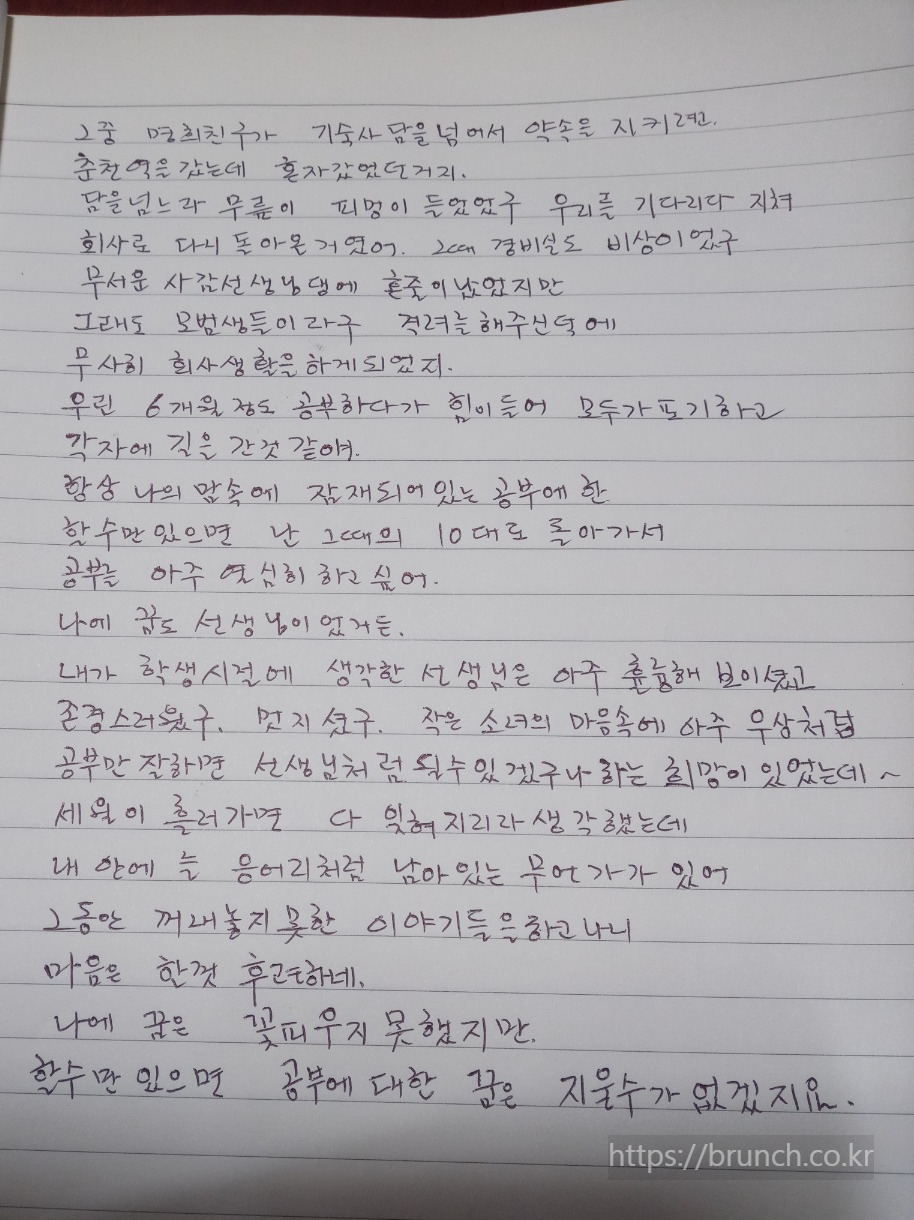 그중 명희친구가 기숙사 담을 넘어서 약속을 지키려고.
춘천역을 갔는데 혼자갔었던거지.
담을넘느라 무릎이 피멍이 들었었구 우리를 기다리다 지쳐
회사로 다시 돌아온거였어. 그때 경비실도 비상이었구
무서운 사감선생님댐에 혼줄이났었지만
그래도 모범생들이라구 격려를해주신덕에
무사히 회사생활을하게되었지.
우린 6개월정도 공부하다가 힘이들어 모두가포기하고
각자에 길을 간것같아여.
항상 나의맘속에 잠재되어있는 공부에한
할수만있으면 난 그때의 10대로 돌아가서
공부를 아주 열심히하고싶어.
나에 꿈도 선생님이었거든.
내가 학생시절에 생각한 선생님은 아주 훌륭해보이셨고
존경스러웠구. 멋지셨구. 작은 소녀의 마음속에 아주 우상처럼
공부만 잘하면 선생님처럼 될수있겠구나하는 희망이있었는데~
세월이 흘러가면 다 잊혀지리라생각했는데
내 안에 늘 응어리처럼 남아있는 무언가가 있어
그동안 꺼내놓지못한 이야기들을하고나니
마음은 한껏 후련하네.
나에 꿈은 꽃피우지못했지만.
할수만있으면 공부에대한 꿈은 지울수가없겠지요.
https://brunch.co.kr